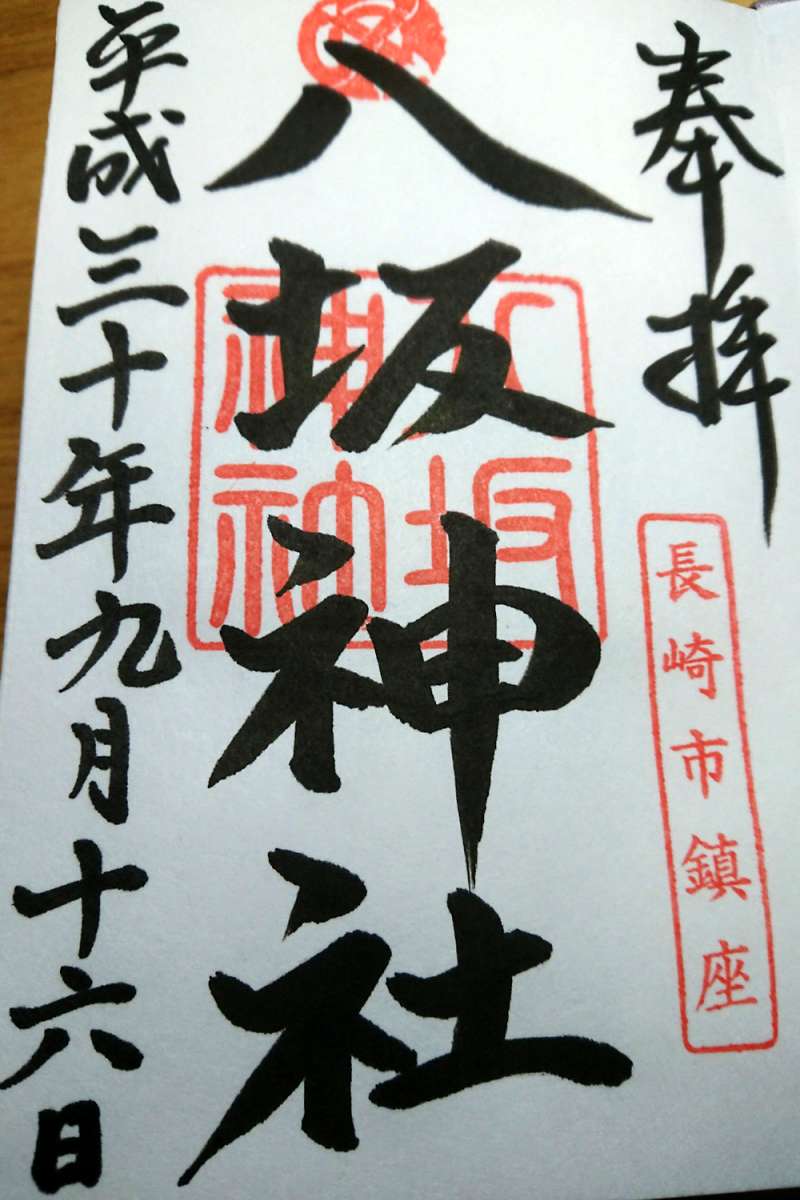 奉拝
長崎市鎮座
八坂神社
八坂
神社
平成三十年九月十六日